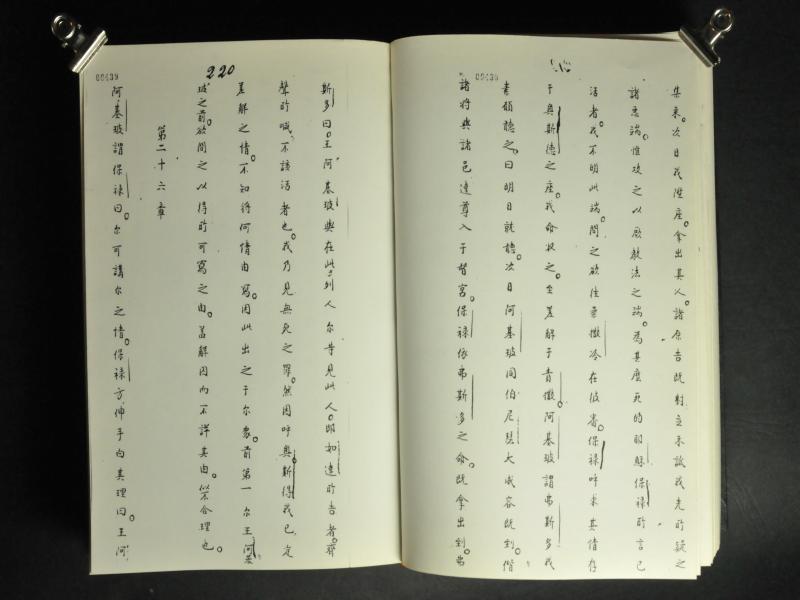 00439
集來。次日我陞座。拿出其人。諸原告既對立未說我先所疑之
諸惡端。惟攻之以厥教法之端。為其麼死的耶穌。保祿所言已
活者。我不明此端。問之欲往耶撒冷在彼審。保祿呼求其情存
于奧斯德之座。我命收之。至差解于責撒。阿基玻謂弗斯多。我
素願聽之。曰。明日就聽。次日阿基玻同伯尼琵大威容既到。偕
諸將與諸邑達尊入于督宮。保祿依弗斯多之命。既拿出到。弗
220
00439
斯多曰。王阿基玻與在此列人。尔等見此人。即如達所告者。齊
聲所喊。不該活者也。我乃見無死之罪。然因呼奧斯得我已定
差解之情。不知將何情由寫。因此出之于尔眾前。第一尔王阿基
玻之前。欲問之以得所可寫之由。盖解囚而不詳其由。似不合理也。
第二十六章
阿基玻謂保祿曰。尔可講尔之情。保祿方伸手而其理曰。王阿